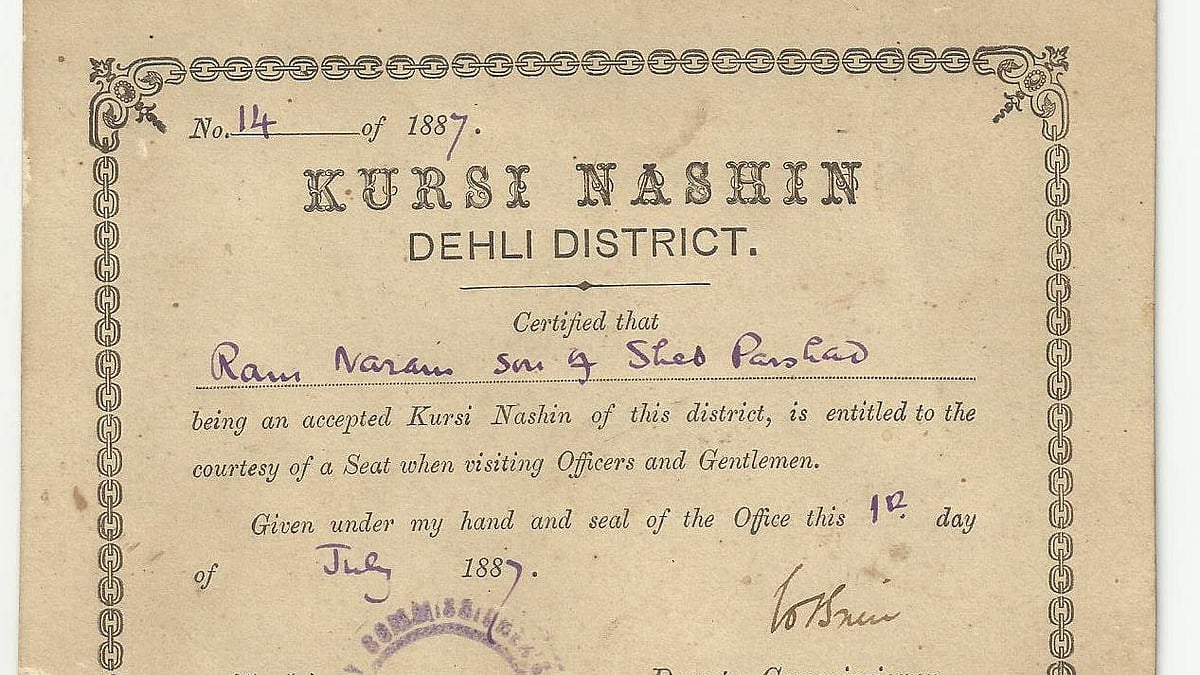 No. 14 of 1887.
KURSI NASHIN
DEHLI DISTRICT.
Certified that
Ram Narain son of Sheo Parshad
being an accepted Kursi Nashin of this district, is entitled to the
courtesy of a Seat when visiting Officers and Gentlemen.
Given under my hand and seal of the Office this 1st day
of July 1887.
COMMISSIONER'S
Deputy Commissioner